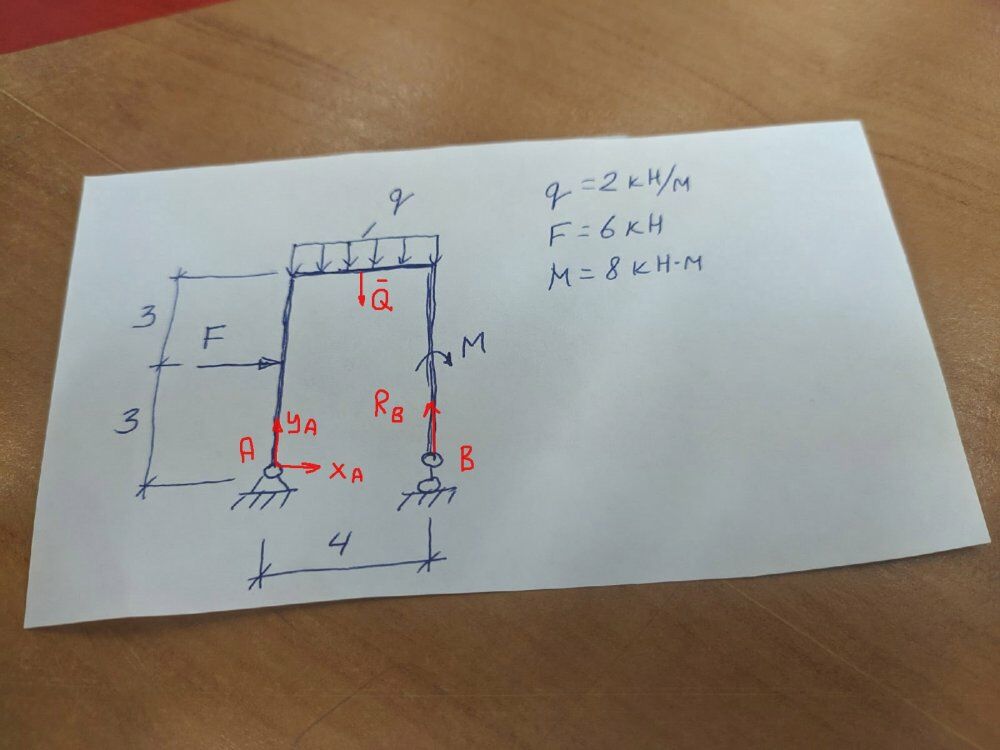 q
q = 2 кН/м
F = 6 кН
M = 8 кН·м
3
F
Q̄
M
3
R_B
y_A
A
x_A
B
4